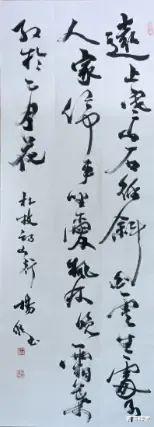 遠上寒山石徑斜白雲生處有
人家停車坐愛楓林晚霜葉
紅於二月花 杜牧詩山行 楊